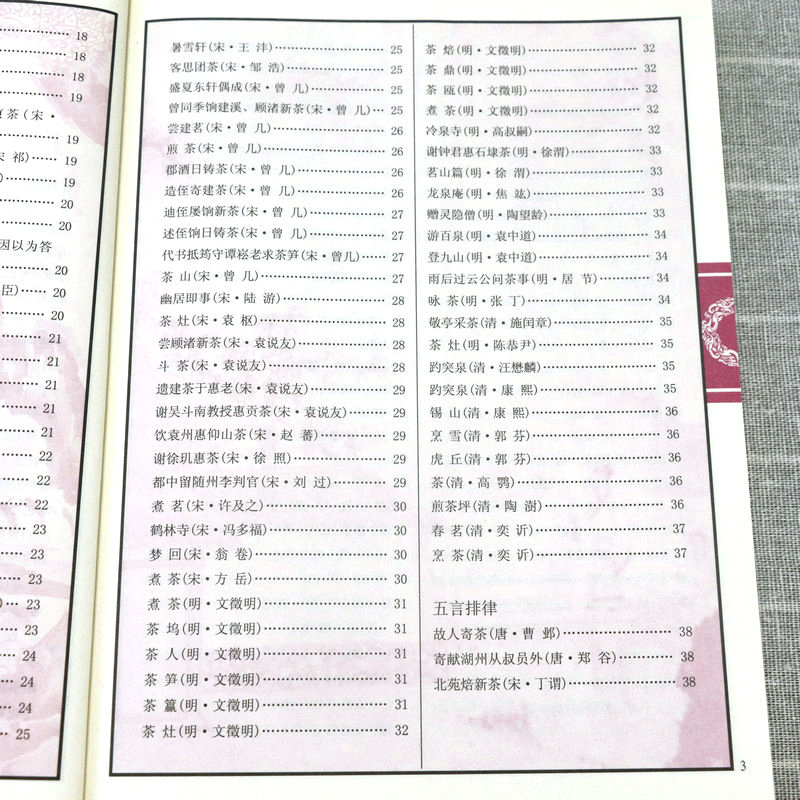 18
18
18
19
贡茶(宋·
19
宋 祁)…… 19
)…… 19
20
20
因以为答
20
臣)…… 20
20
21
21
21
21
21
22
22
22
23
23
23
23
23
24
24
24
25
暑雪轩(宋·王 沣)…… 25
客思团茶(宋·邹 浩)…… 25
盛夏东轩偶成(宋·曾 几)…… 25
曾同季饷建溪、顾渚新茶(宋·曾 几)…… 25
尝建茗(宋·曾 几)…… 26
煎 茶(宋·曾 几)…… 26
郡酒日铸茶(宋·曾 几)…… 26
造侄寄建茶(宋·曾 几)…… 26
迪侄屡饷新茶(宋·曾 几)…… 27
述侄饷日铸茶(宋·曾 几)…… 27
代书抵筠守谭崧老求茶笋(宋·曾几)…… 27
茶 山(宋·曾 几)…… 27
幽居即事(宋·陆 游)…… 28
茶 灶(宋·袁 枢)…… 28
尝顾渚新茶(宋·袁说友)…… 28
斗 茶(宋·袁说友)…… 28
遗建茶于惠老(宋·袁说友)…… 29
谢吴斗南教授惠贡茶(宋·袁说友)…… 29
饮袁州惠仰山茶(宋·赵 蕃)…… 29
谢徐玑惠茶(宋·徐 照)…… 29
都中留随州李判官(宋·刘 过)…… 29
煮 茗(宋·许及之)…… 30
鹤林寺(宋·冯多福)…… 30
梦 回(宋·翁 卷)…… 30
煮 茶(宋·方 岳)…… 30
煮 茶(明·文徵明)…… 31
茶 坞(明·文徵明)…… 31
茶 人(明·文徵明)…… 31
茶 笋(明·文徵明)…… 31
茶 籝(明·文徵明)…… 31
茶 灶(明·文徵明)…… 32
茶 焙(明·文徵明)…… 32
茶 鼎(明·文徵明)…… 32
茶 瓯(明·文徵明)…… 32
煮 茶(明·文徵明)…… 32
冷泉寺(明·高叔嗣)…… 32
谢钟君惠石埭茶(明·徐渭)…… 33
茗山篇(明·徐 渭)…… 33
龙泉庵(明·焦 竑)…… 33
赠灵隐僧(明·陶望龄)…… 33
游百泉(明·袁中道)…… 34
登九山(明·袁中道)…… 34
雨后过云公问茶事(明·居 节)…… 34
咏 茶(明·张 丁)…… 34
敬亭采茶(清·施闰章)…… 35
茶 灶(明·陈恭尹)…… 35
趵突泉(清·汪懋麟)…… 35
趵突泉(清·康 熙)…… 35
锡 山(清·康 熙)…… 36
烹 雪(清·郭 芬)…… 36
虎 丘(清·郭 芬)…… 36
茶(清·高 鹗)…… 36
煎茶坪(清·陶 澍)…… 36
春 茗(清·奕 䜣)…… 37
烹 茶(清·奕 䜣)…… 37
五言排律
故人寄茶(唐·曹 邺)…… 38
寄献湖州从叔员外(唐·郑 谷)…… 38
北苑焙新茶(宋·丁谓)…… 38
3